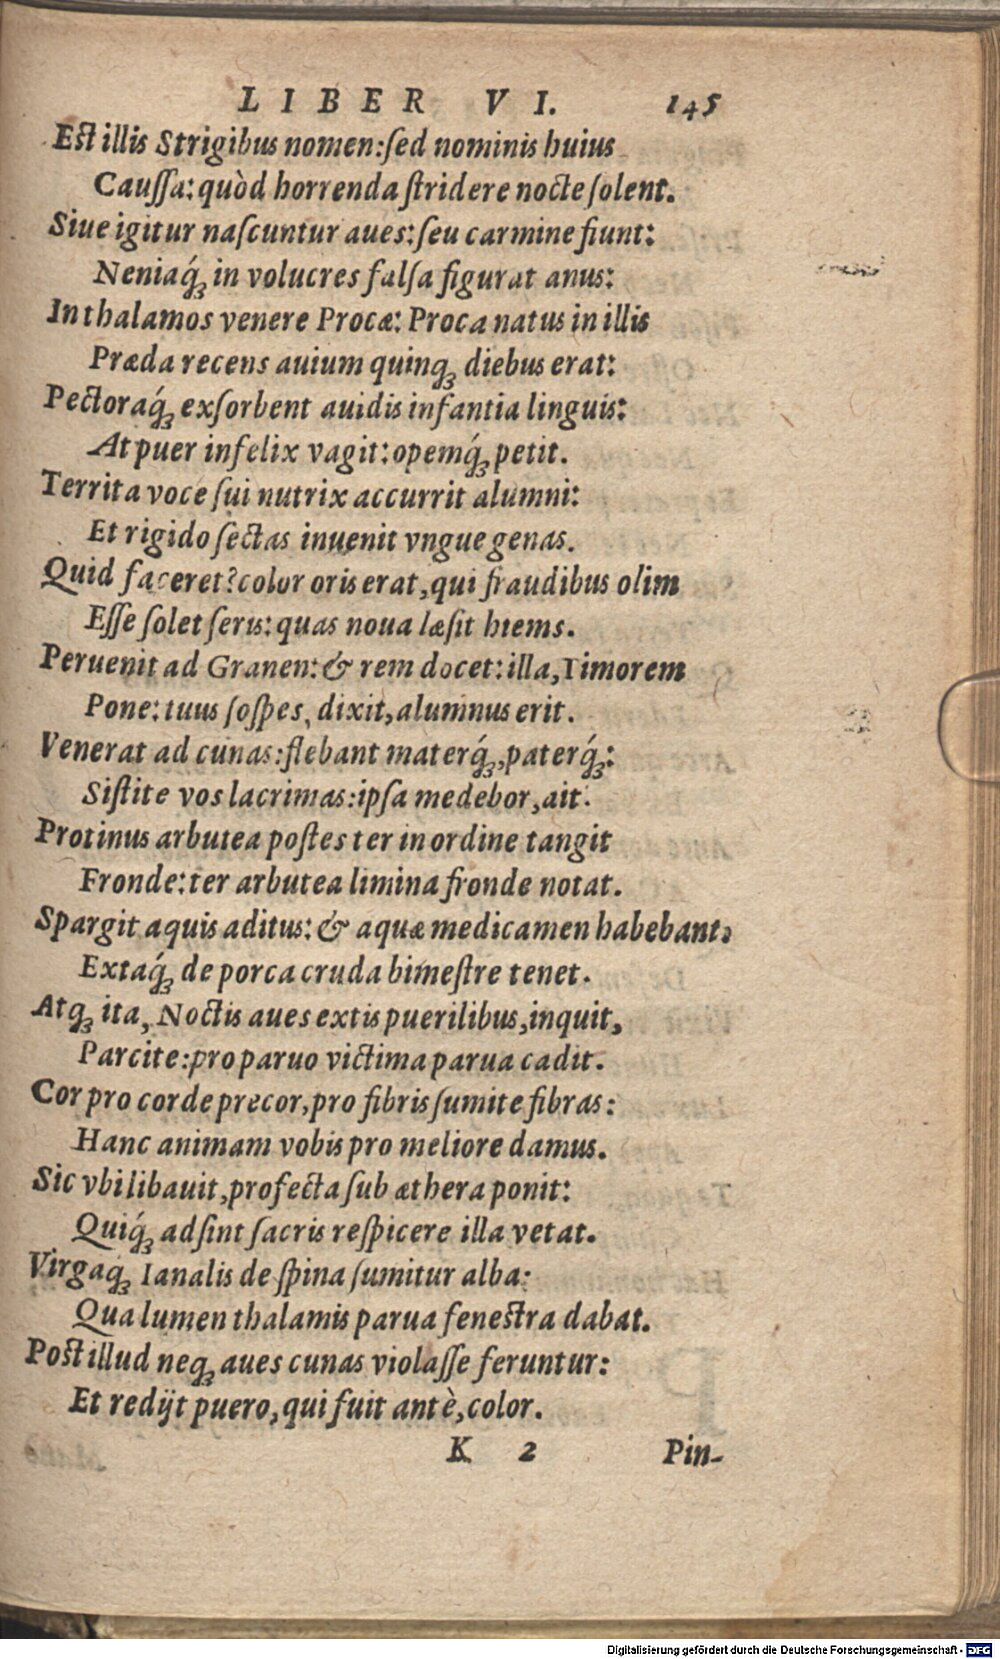 LIBER VI. 145
Est illis Strigibus nomen: sed nominis huius
Caussa: quòd horrenda stridere nocte solent.
Siue igitur nascuntur aues: seu carmine fiunt:
Neniaq́ꝫ in volucres falsa figurat anus:
In thalamos venere Procæ: Proca natus in illis
Præda recens auium quinqꝫ diebus erat:
Pectoraq́ꝫ exsorbent auidis infantia linguis:
At puer infelix vagit: opemq́ꝫ petit.
Territa voce sui nutrix accurrit alumni:
Et rigido sectas inuenit vngue genas.
Quid faceret? color oris erat, qui fraudibus olim
Esse solet seris: quas noua læsit hiems.
Peruenit ad Granen: & rem docet: illa, Timorem
Pone: tuus sospes, dixit, alumnus erit.
Venerat ad cunas: flebant materq́ꝫ, paterq́ꝫ:
Sistite vos lacrimas: ipsa medebor, ait.
Protinus arbutea postes ter in ordine tangit
Fronde: ter arbutea limina fronde notat.
Spargit aquis aditus: & aquæ medicamen habebant:
Extaq́ꝫ de porca cruda bimestre tenet.
Atqꝫ ita, Noctis aues extis puerilibus, inquit,
Parcite: pro paruo victima parua cadit.
Cor pro corde precor, pro fibris sumite fibras:
Hanc animam vobis pro meliore damus.
Sic vbi libauit, profecta sub æthera ponit:
Quiq́ꝫ adsint sacris respicere illa vetat.
Virgaqꝫ Ianalis de spina sumitur alba:
Qua lumen thalamis parua fenestra dabat.
Post illud neqꝫ aues cunas violasse feruntur:
Et redijt puero, qui fuit antè, color.
K 2 Pin-
Digitalisierung gefördert durch die Deutsche Forschungsgemeinschaft - DFG